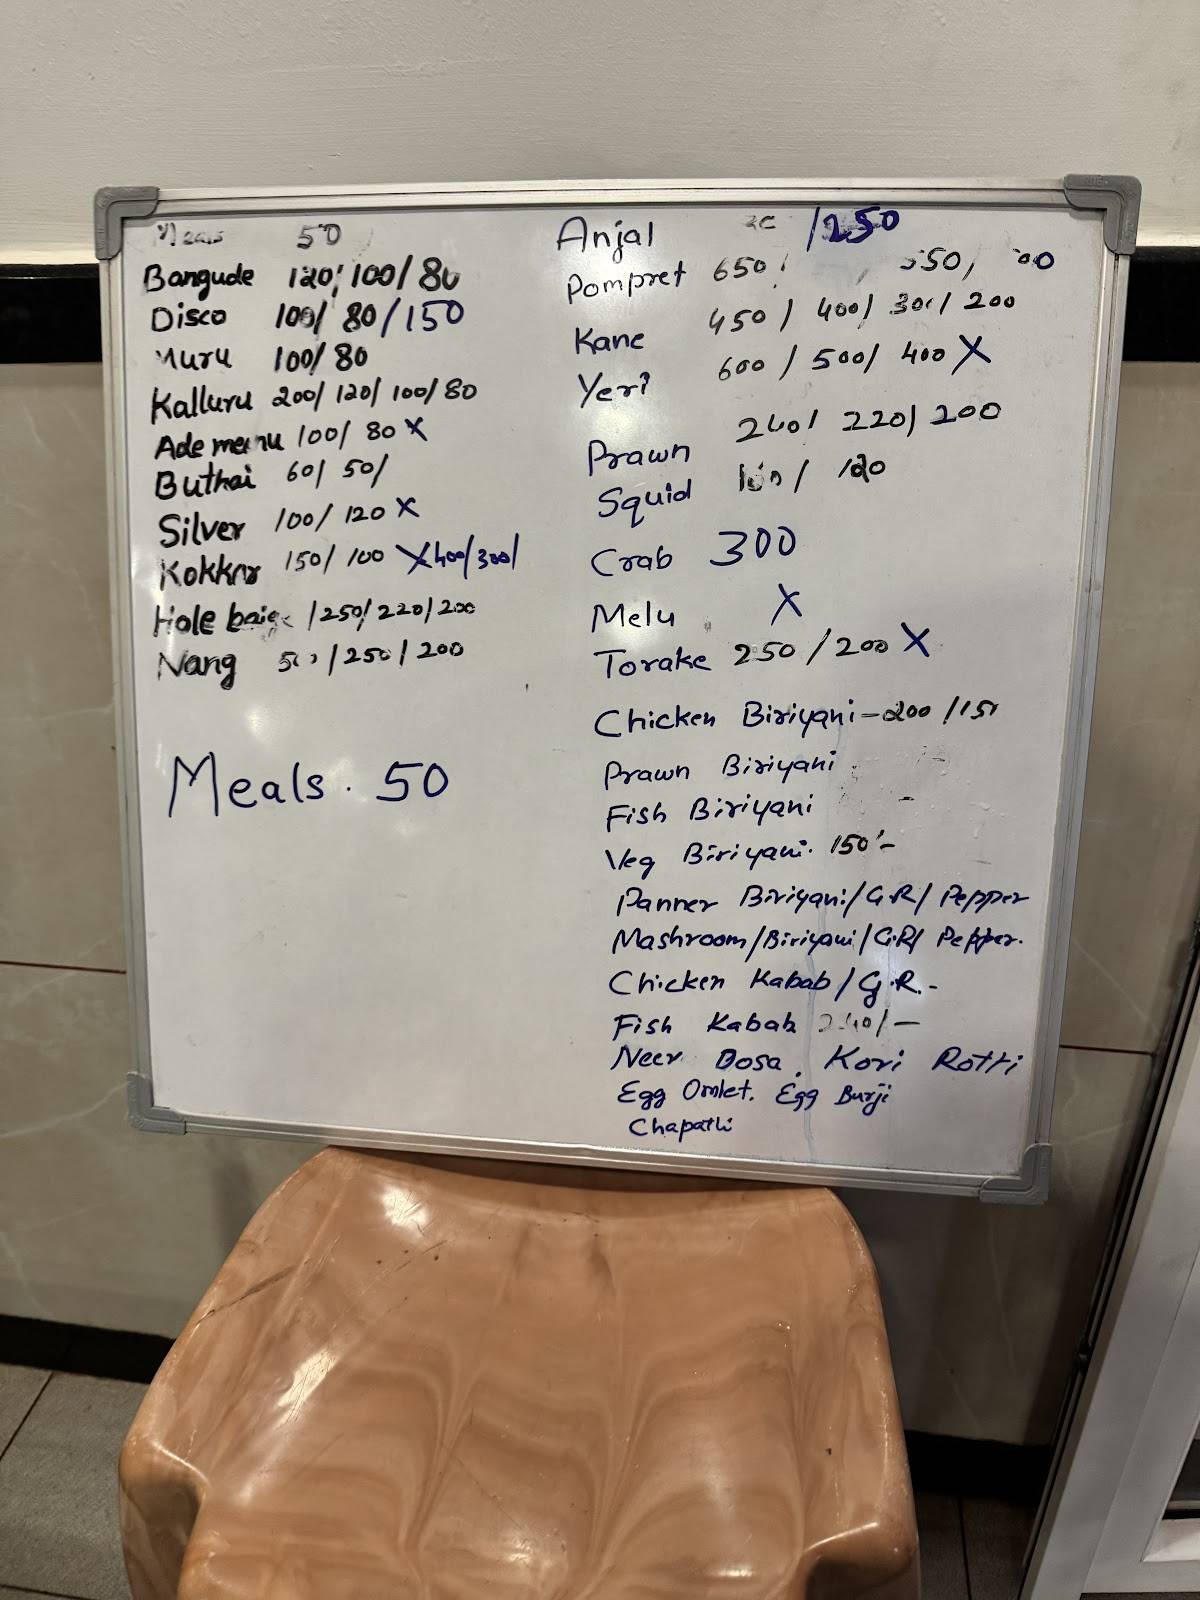 Meals 50
Bangude 120/100/80
Disco 100/80/150
Muru 100/80
Kalluru 200/120/100/80
Ade meenu 100/80 X
Buthai 60/50/
Silver 100/120 X
Kokkar 150/100 X 400/300/
Hole baige /250/220/200
Nang /250/200
Meals. 50
Anjal /250
Pompret 650/
Kane 450/400/300/200
Yeri 600/500/400 X
Prawn 240/220/200
Squid 120
Crab 300
Melu X
Torake 250/200 X
Chicken Biriyani - 200/150
Prawn Biriyani
Fish Biriyani
Veg Biriyani. 150/-
Panner Biriyani/G.R/Pepper
Mashroom/Biriyani/G.R/Pepper.
Chicken Kabab/G.R.-
Fish Kabab 240/-
Neer Dosa, Kori Rotti
Egg Omlet. Egg Burji
Chapathi